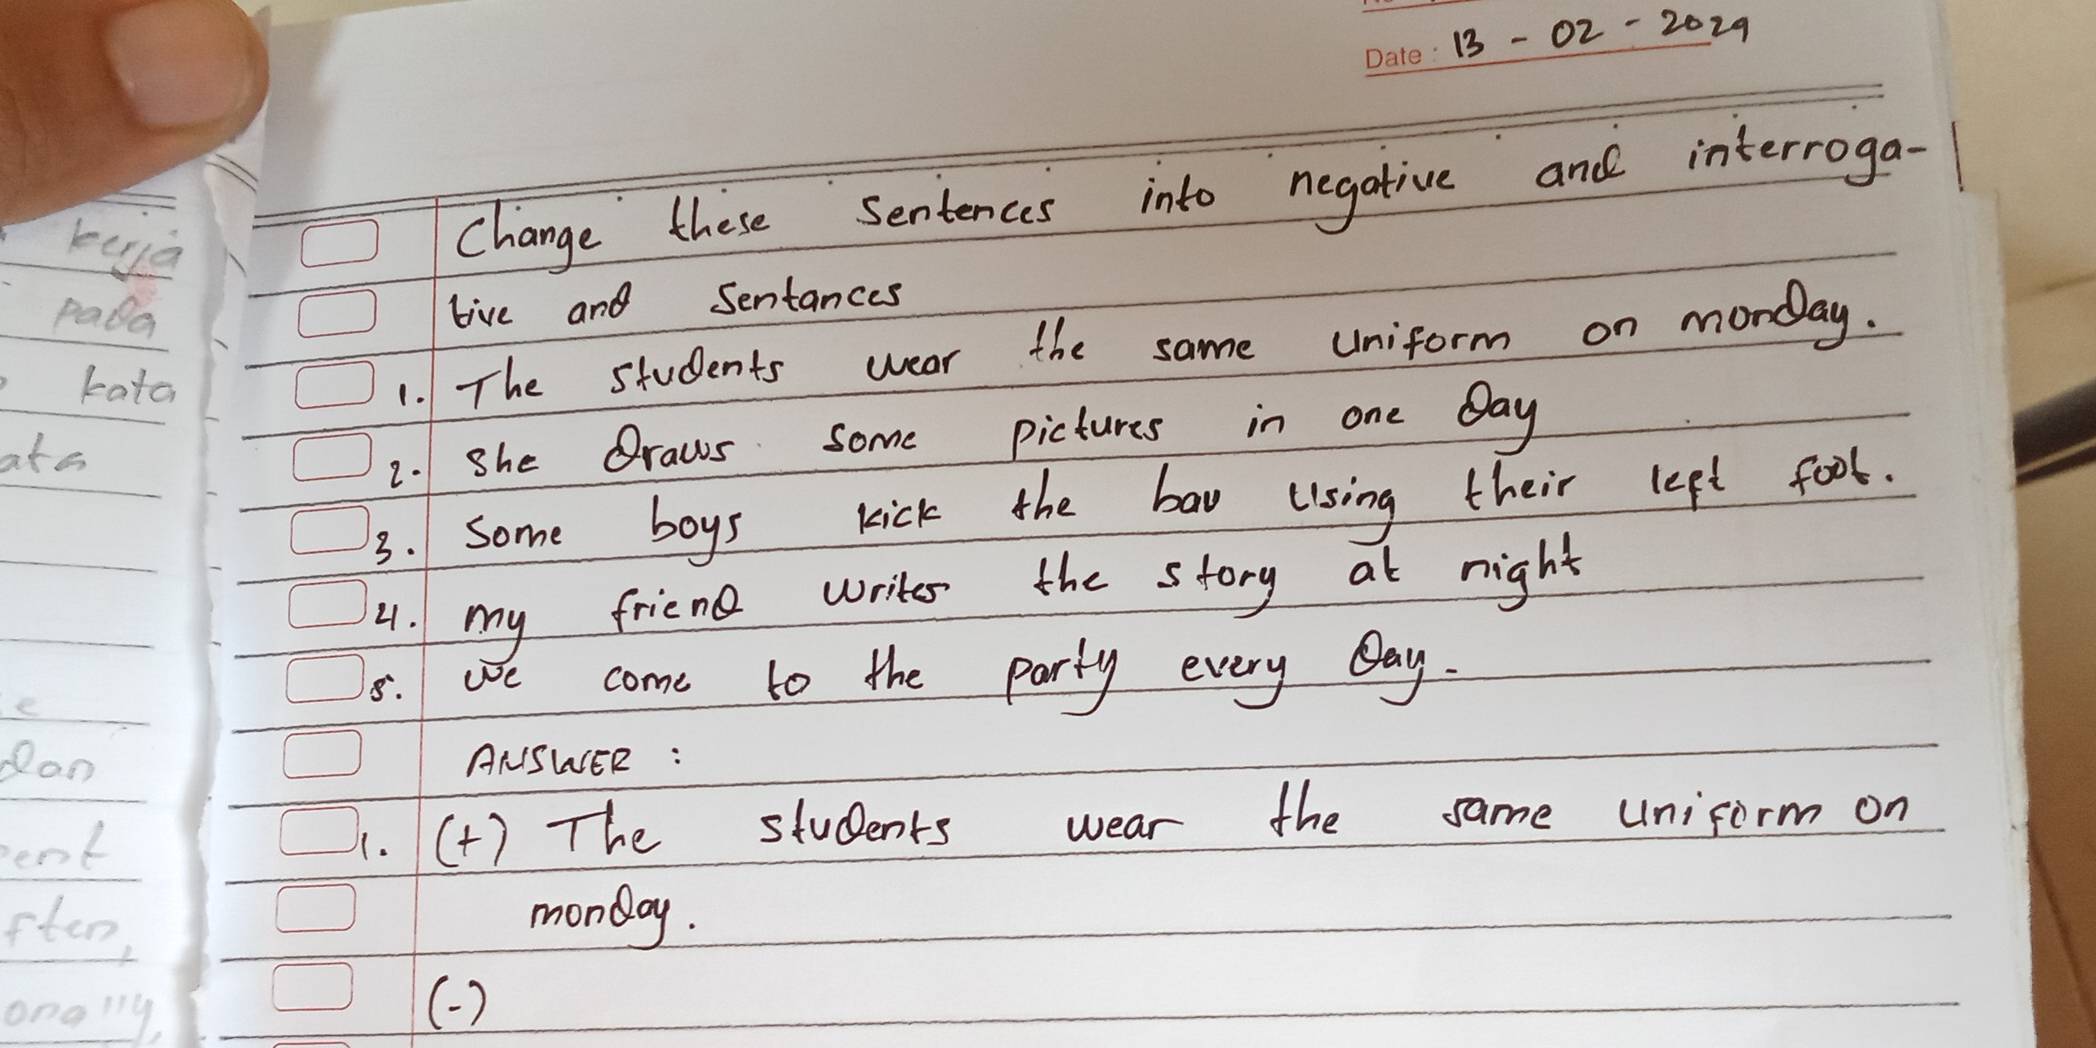 Date : 13 - 02 - 2024
Change these Sentences into negative and interroga-
tive and Sentances
1. The students wear the same uniform on monday.
2. She draws some pictures in one day
3. Some boys kick the ball using their left foot.
4. my friend writes the story at night
5. we come to the party every day.
ANSWER :
1. (+) The students wear the same uniform on
monday.
(-)
kerja
pada
kata
ata
e
dan
ent
ften,
onally,